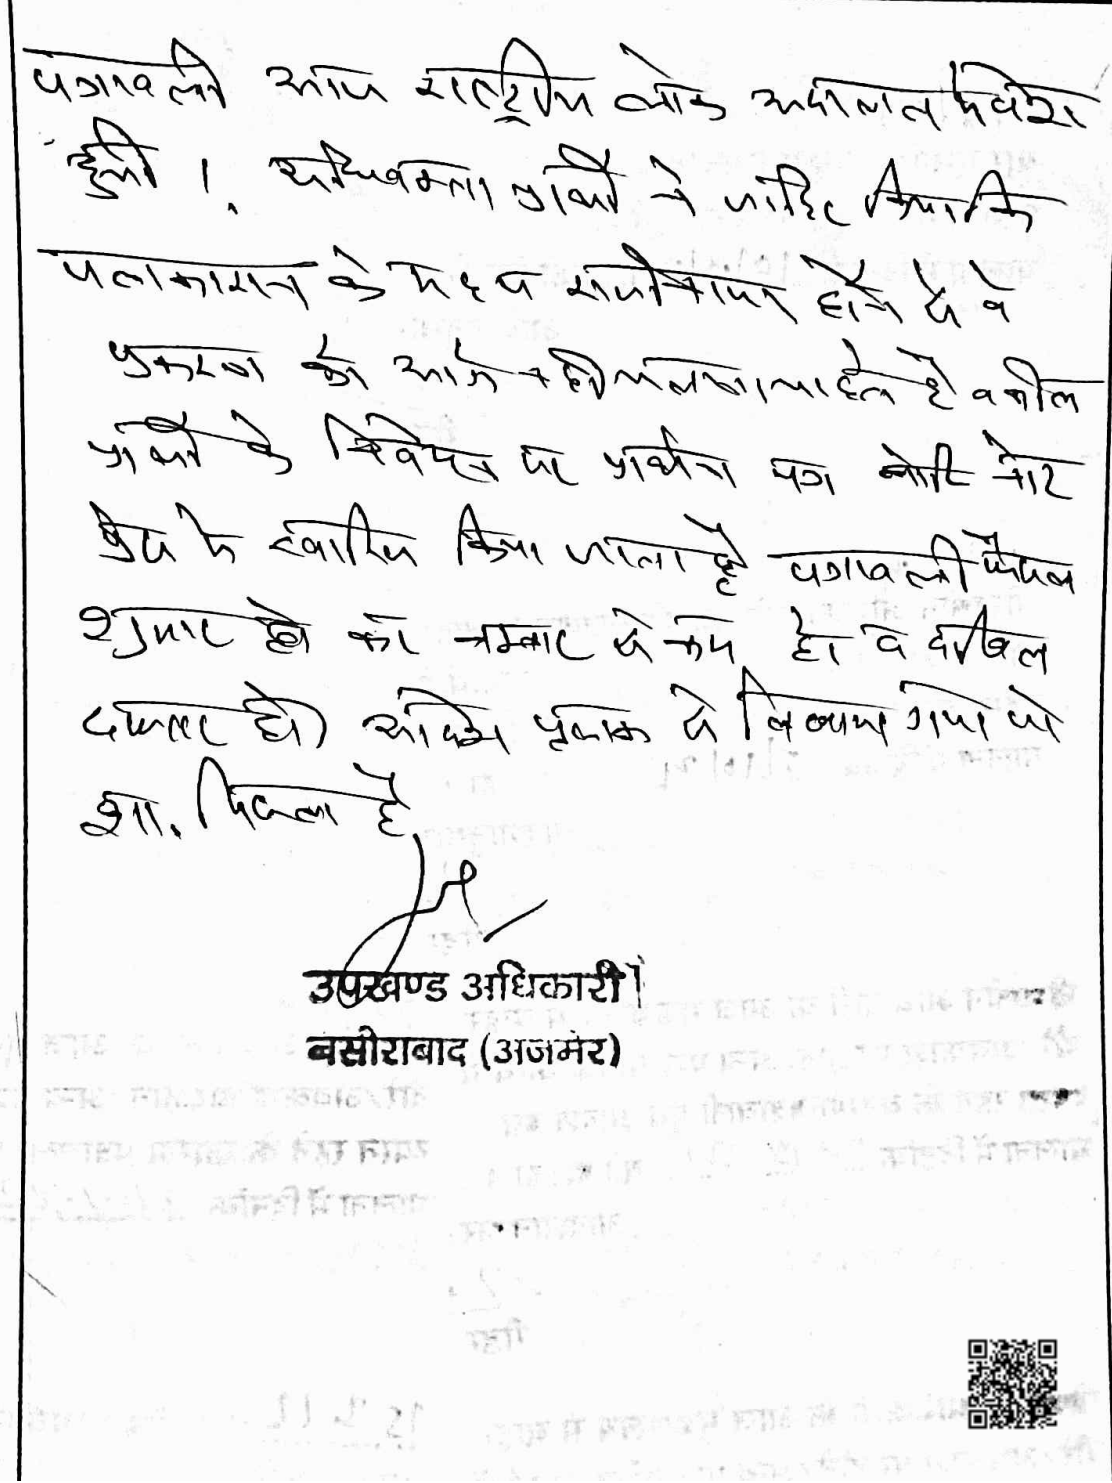 पत्रावली आज राष्ट्रीय लोक अदालत में पेश
हुयी । अधिवक्ता प्रार्थी ने जाहिर किया कि
पक्षकारान के मध्य राजीनामा होने से वे
प्रकरण को आगे नही चलाना चाहते है वकील
प्रार्थी के निवेदन पर प्रार्थना पत्र नोट
प्रेस में खारिज किया जाता है पत्रावली फैसल
शुमार हो कर नम्बर से कम हो व दाखिल
दफ्तर हो। आदेश पृथक से लिखाया गया जो
शा. मिसल है
उपखण्ड अधिकारी
नसीराबाद (अजमेर)